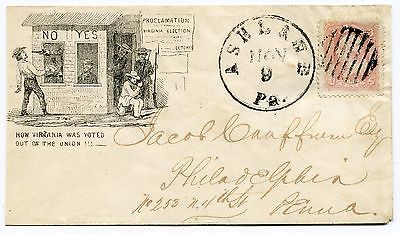 PROCLAMATION
VIRGINIA ELECTION
LETCHER
NO YES
HOW VIRGINIA WAS VOTED
OUT OF THE UNION !!! —
ASHLAND
NOV
9
Pa.
Jacob Cauffman Esq
Philadelphia
No 253 N. 4th St Penna